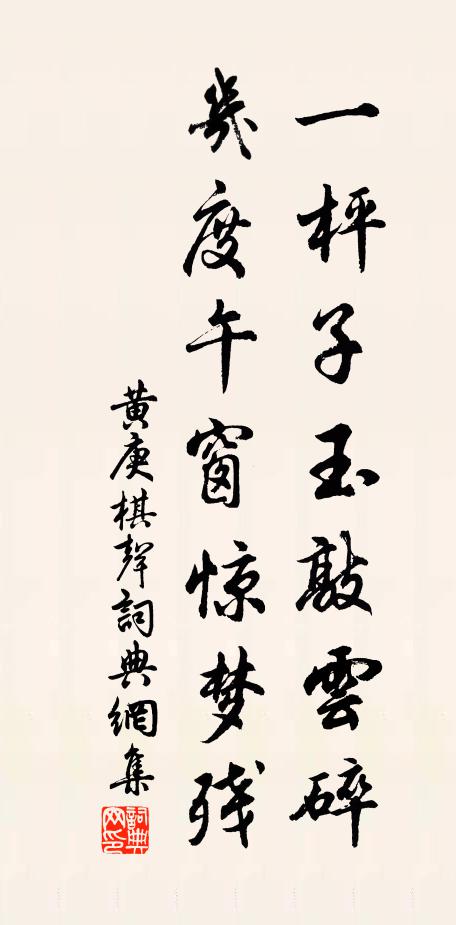 一枰子玉敲雲碎
幾度午窗惊梦残
黄庚棋聲詞典網集
詞典網印